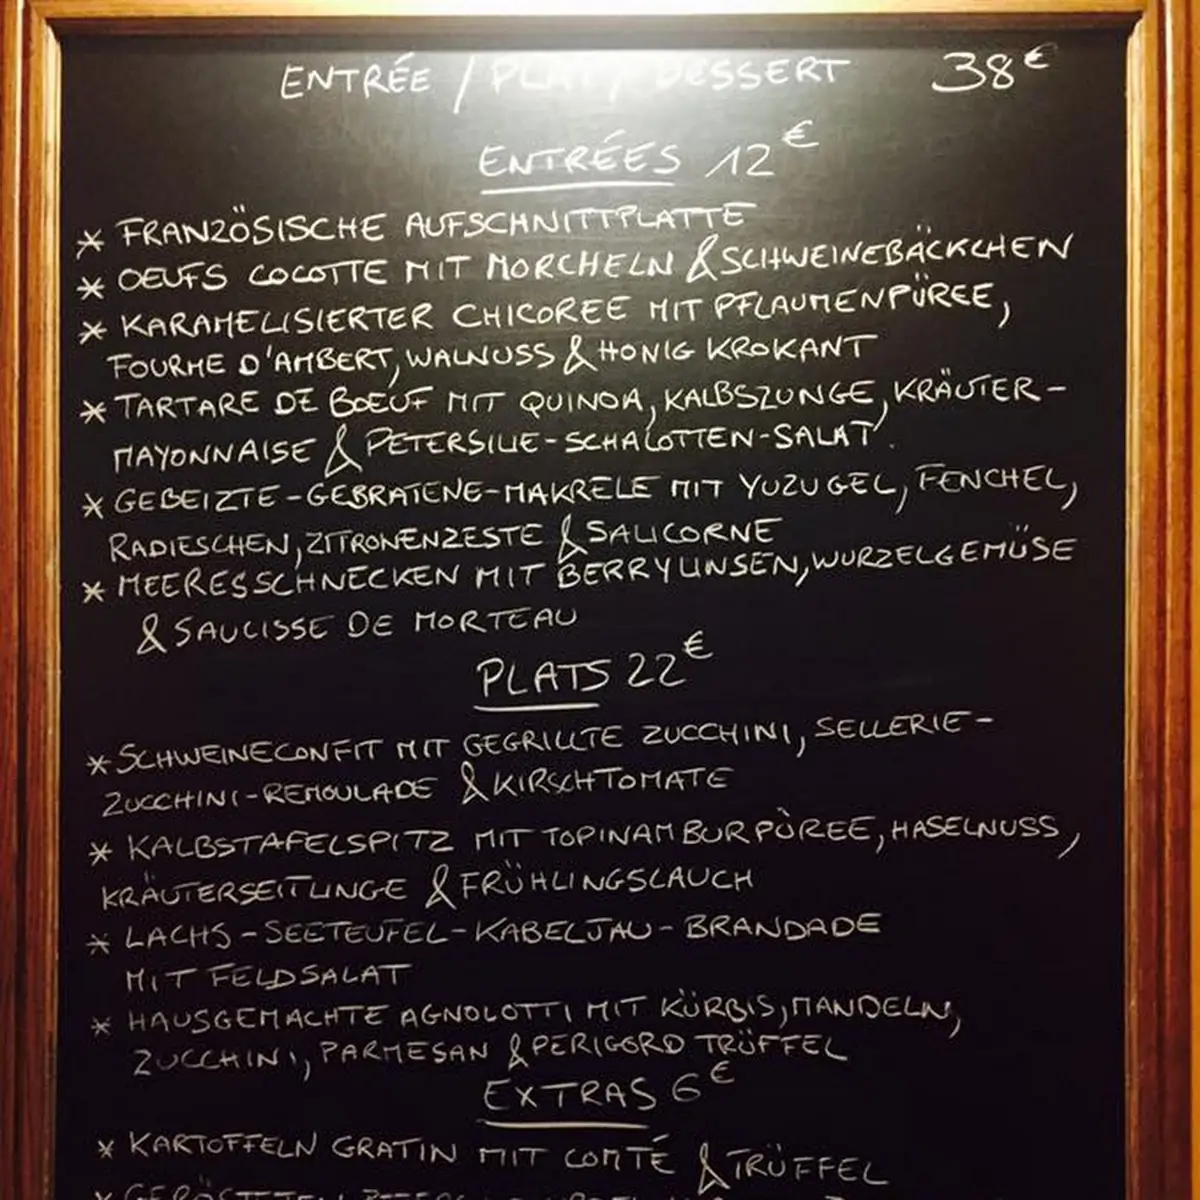 ENTRÉE / PLAT / DESSERT 38€
ENTRÉES 12€
* FRANZÖSISCHE AUFSCHNITTPLATTE
* OEUFS COCOTTE MIT MORCHELN & SCHWEINEBÄCKCHEN
* KARAMELISIERTER CHICOREE MIT PFLAUMENPÜREE,
FOURME D'AMBERT, WALNUSS & HONIG KROKANT
* TARTARE DE BOEUF MIT QUINOA, KALBSZUNGE, KRÄUTER-
MAYONNAISE & PETERSILIE-SCHALOTTEN-SALAT.
* GEBEIZTE-GEBRATENE-MAKRELE MIT YUZUGEL, FENCHEL,
RADIESCHEN, ZITRONENZESTE & SALICORNE
* MEERESSCHNECKEN MIT BERRYLINSEN, WURZELGEMÜSE
& SAUCISSE DE MORTEAU
PLATS 22€
* SCHWEINECONFIT MIT GEGRILLTE ZUCCHINI, SELLERIE-
ZUCCHINI-REMOULADE & KIRSCHTOMATE
* KALBSTAFELSPITZ MIT TOPINAMBURPÜREE, HASELNUSS,
KRÄUTERSEITLINGE & FRÜHLINGSLAUCH
* LACHS-SEETEUFEL-KABELJAU-BRANDADE
MIT FELDSALAT
* HAUSGEMACHTE AGNOLOTTI MIT KÜRBIS, MANDELN,
ZUCCHINI, PARMESAN & PERIGORD TRÜFFEL
EXTRAS 6€
* KARTOFFELN GRATIN MIT COMTÉ & TRÜFFEL